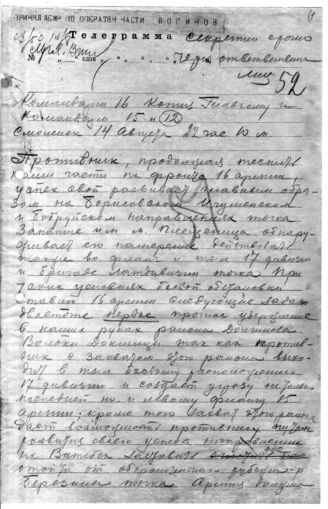 ПРИНЯЛ ДЕЖУР ПО ОПЕРАТИВН ЧАСТИ ЛОГИНОВ
Телеграмма секретно срочно
№ слов
через ответственных
лиц 52
Командарм 16 копия Главкому и
командарм 15 и 12
Смоленск 14 Августа 22 час 10 м
Противник, продолжая теснить
наши части на фронте 16 армии,
успех свой развивает главным обра-
зом на Борисовском Игуменском
и Бобруйском направлениях точка
Занятие им м. Плещеница обнару-
живает его намерение действовать
также во фланг и тыл 17 дивизии
и бригаде латдивизии точка При
таких условиях боевой обстановки
главной 16 армии следующие задачи
первое прочное удержание
в наших руках района Докшицы
так как против-
ник с захватом этого района выхо-
дит в тыл боевому расположению
17 дивизии и создает угрозу
последней но и левому флангу 15
Армии; кроме того захват этого района
дает возможность противнику путем
развития своего успеха направлении
на Витебск
отойти от оборонительного рубежа р
Березина точка Армии должна